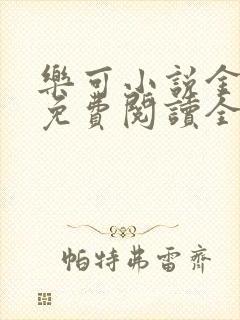 樂可小說全
免費閱讀全
帕特弗雷齊